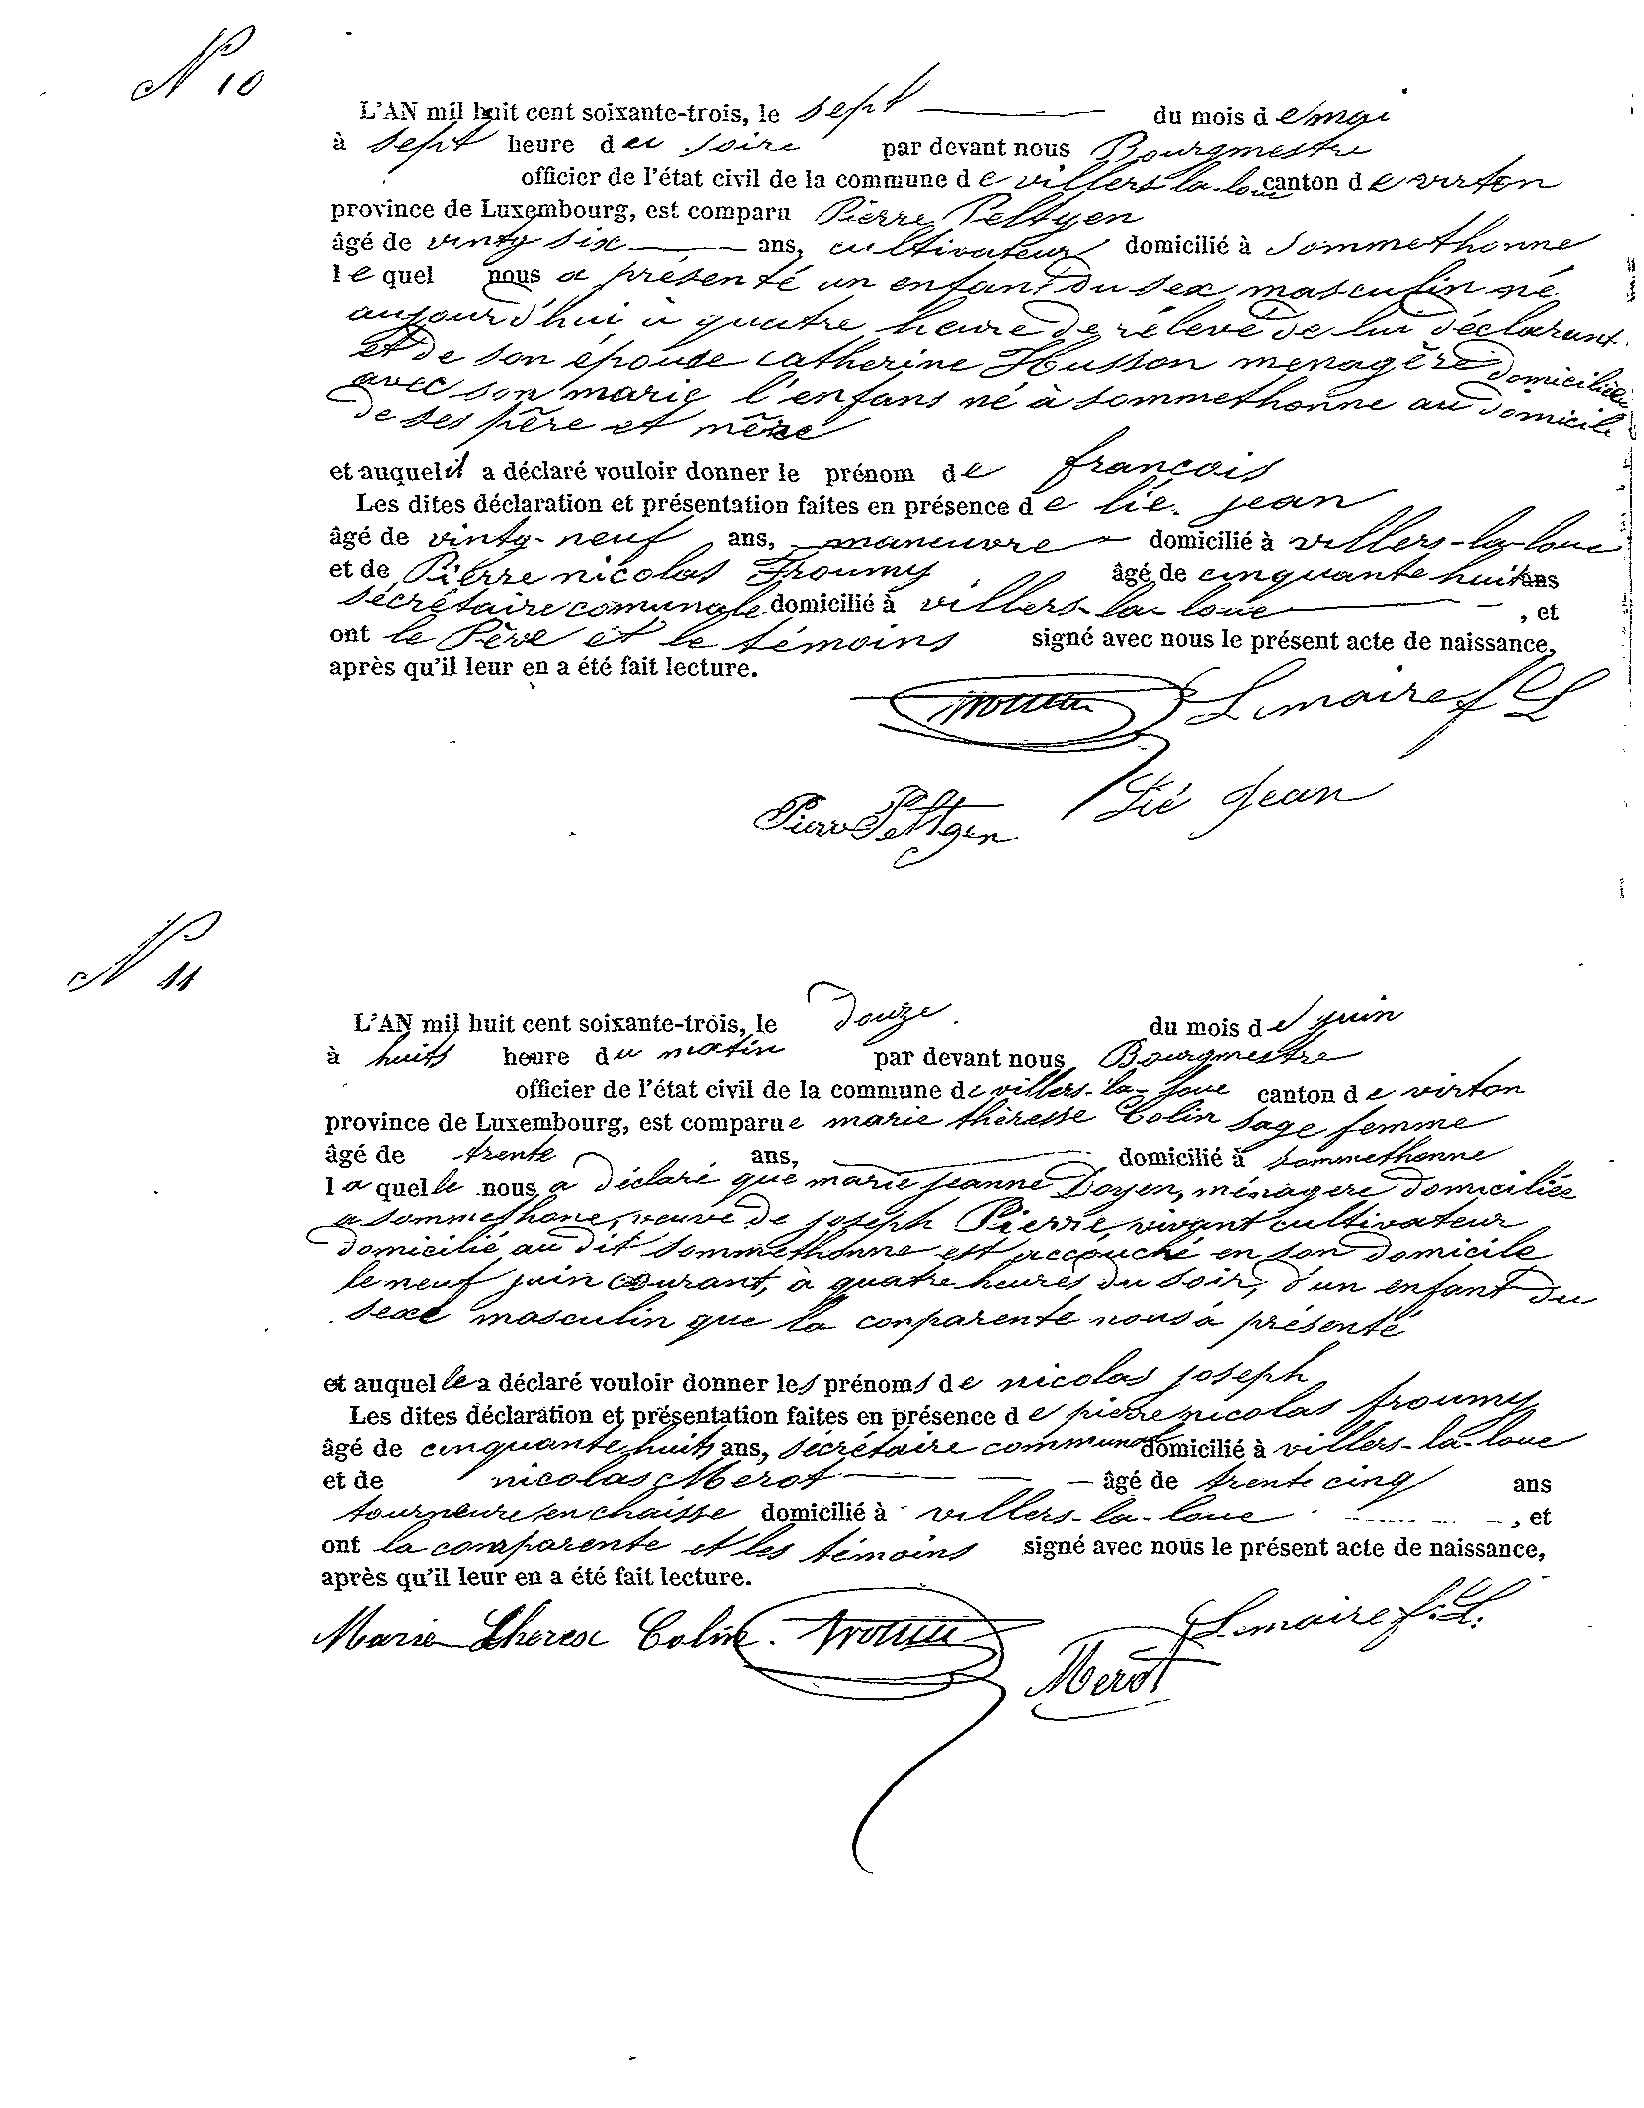 N 10
L'AN mil huit cent soixante-trois, le sept du mois de mai
à sept heure du soire par devant nous Bourgmestre
officier de l'état civil de la commune de villers-la-loue canton de virton
province de Luxembourg, est comparu Pierre Peltgen
âgé de vinty six ans, cultivateur domicilié à Sommethonne
lequel nous a présenté un enfant du sex masculin né
aujourd'hui à quatre heure de rélevé de lui déclarant
et de son épouse catherine Husson menagère domiciliée
avec son marie l'enfans né à sommethonne au domicile
de ses père et mère
et auquel il a déclaré vouloir donner le prénom de françois
Les dites déclaration et présentation faites en présence de lié. jean
âgé de vinty-neuf ans, maneuvre domicilié à villers-la-loue
et de Pierre nicolas Froumy âgé de cinquante huit ans
sécrétaire comunale domicilié à villers-la-loue , et
ont le Père et le témoins signé avec nous le présent acte de naissance,
après qu'il leur en a été fait lecture.
Lemaire f L
Pierre Peltgen Lié Jean
N 11
L'AN mil huit cent soixante-trois, le Douze. du mois de juin
à huits heure du matin par devant nous Bourgmestre
officier de l'état civil de la commune de villers-la-loue canton de virton
province de Luxembourg, est comparue marie thèresse Colin sage femme
âgé de trente ans, domicilié à sommethonne
laquelle nous a déclaré que marie jeanne Doyen, ménagere domiciliée
a sommethone, veuve de joseph Pierre, vivant cultivateur
domicilié au dit sommethonne est accouché en son domicile
le neuf juin courant, à quatre heures du soir, d'un enfant du
sexe masculin que la conparente nous à présenté
et auquel le a déclaré vouloir donner les prénoms de nicolas joseph
Les dites déclaration et présentation faites en présence de pierre nicolas froumy
âgé de cinquante huits ans, sécrétaire communal domicilié à villers-la-loue
et de nicolas Merot âgé de trente cinq ans
tourneure en chaisse domicilié à villers-la-loue , et
ont la comparente et les témoins signé avec nous le présent acte de naissance,
après qu'il leur en a été fait lecture.
Marie Theresa Colin. Lemaire f. L.
Merot